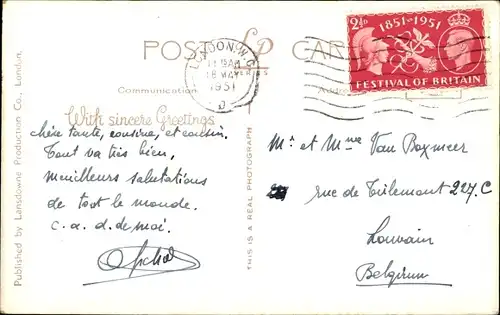 Published by Lansdowne Production Co., London.
POST CARD
LP
Communication
Address
LONDON. W.C.
11 15AM
18 MAY
1951
D
2½D
1851-1951
FESTIVAL OF BRITAIN
With sincere Greetings
chère tante, cousine, et cousin.
Tout va très bien,
meilleurs salutations
de toot le monde.
c. a. d. de moi.
THIS IS A REAL PHOTOGRAPH
Mr et Mme Van Boxmeer
rue de Tirlemont 227. C
Louvain
Belgium